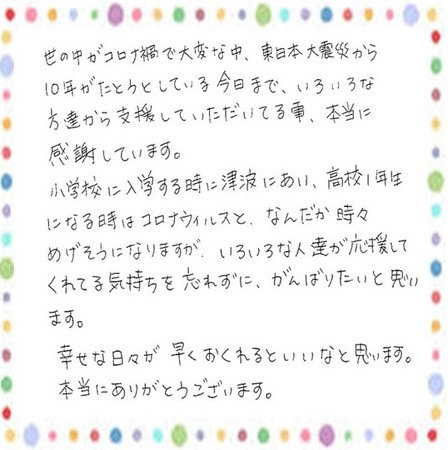 世の中がコロナ禍で大変な中、東日本大震災から
10年がたとうとしている今日まで、いろいろな
方達から支援していただいてる事、本当に
感謝しています。
小学校に入学する時に津波にあい、高校1年生
になる時はコロナウィルスと、なんだか時々
めげそうになりますが、いろいろな人達が応援して
くれてる気持ちを忘れずに、がんばりたいと思い
ます。
幸せな日々が早くおくれるといいなと思います。
本当にありがとうございます。